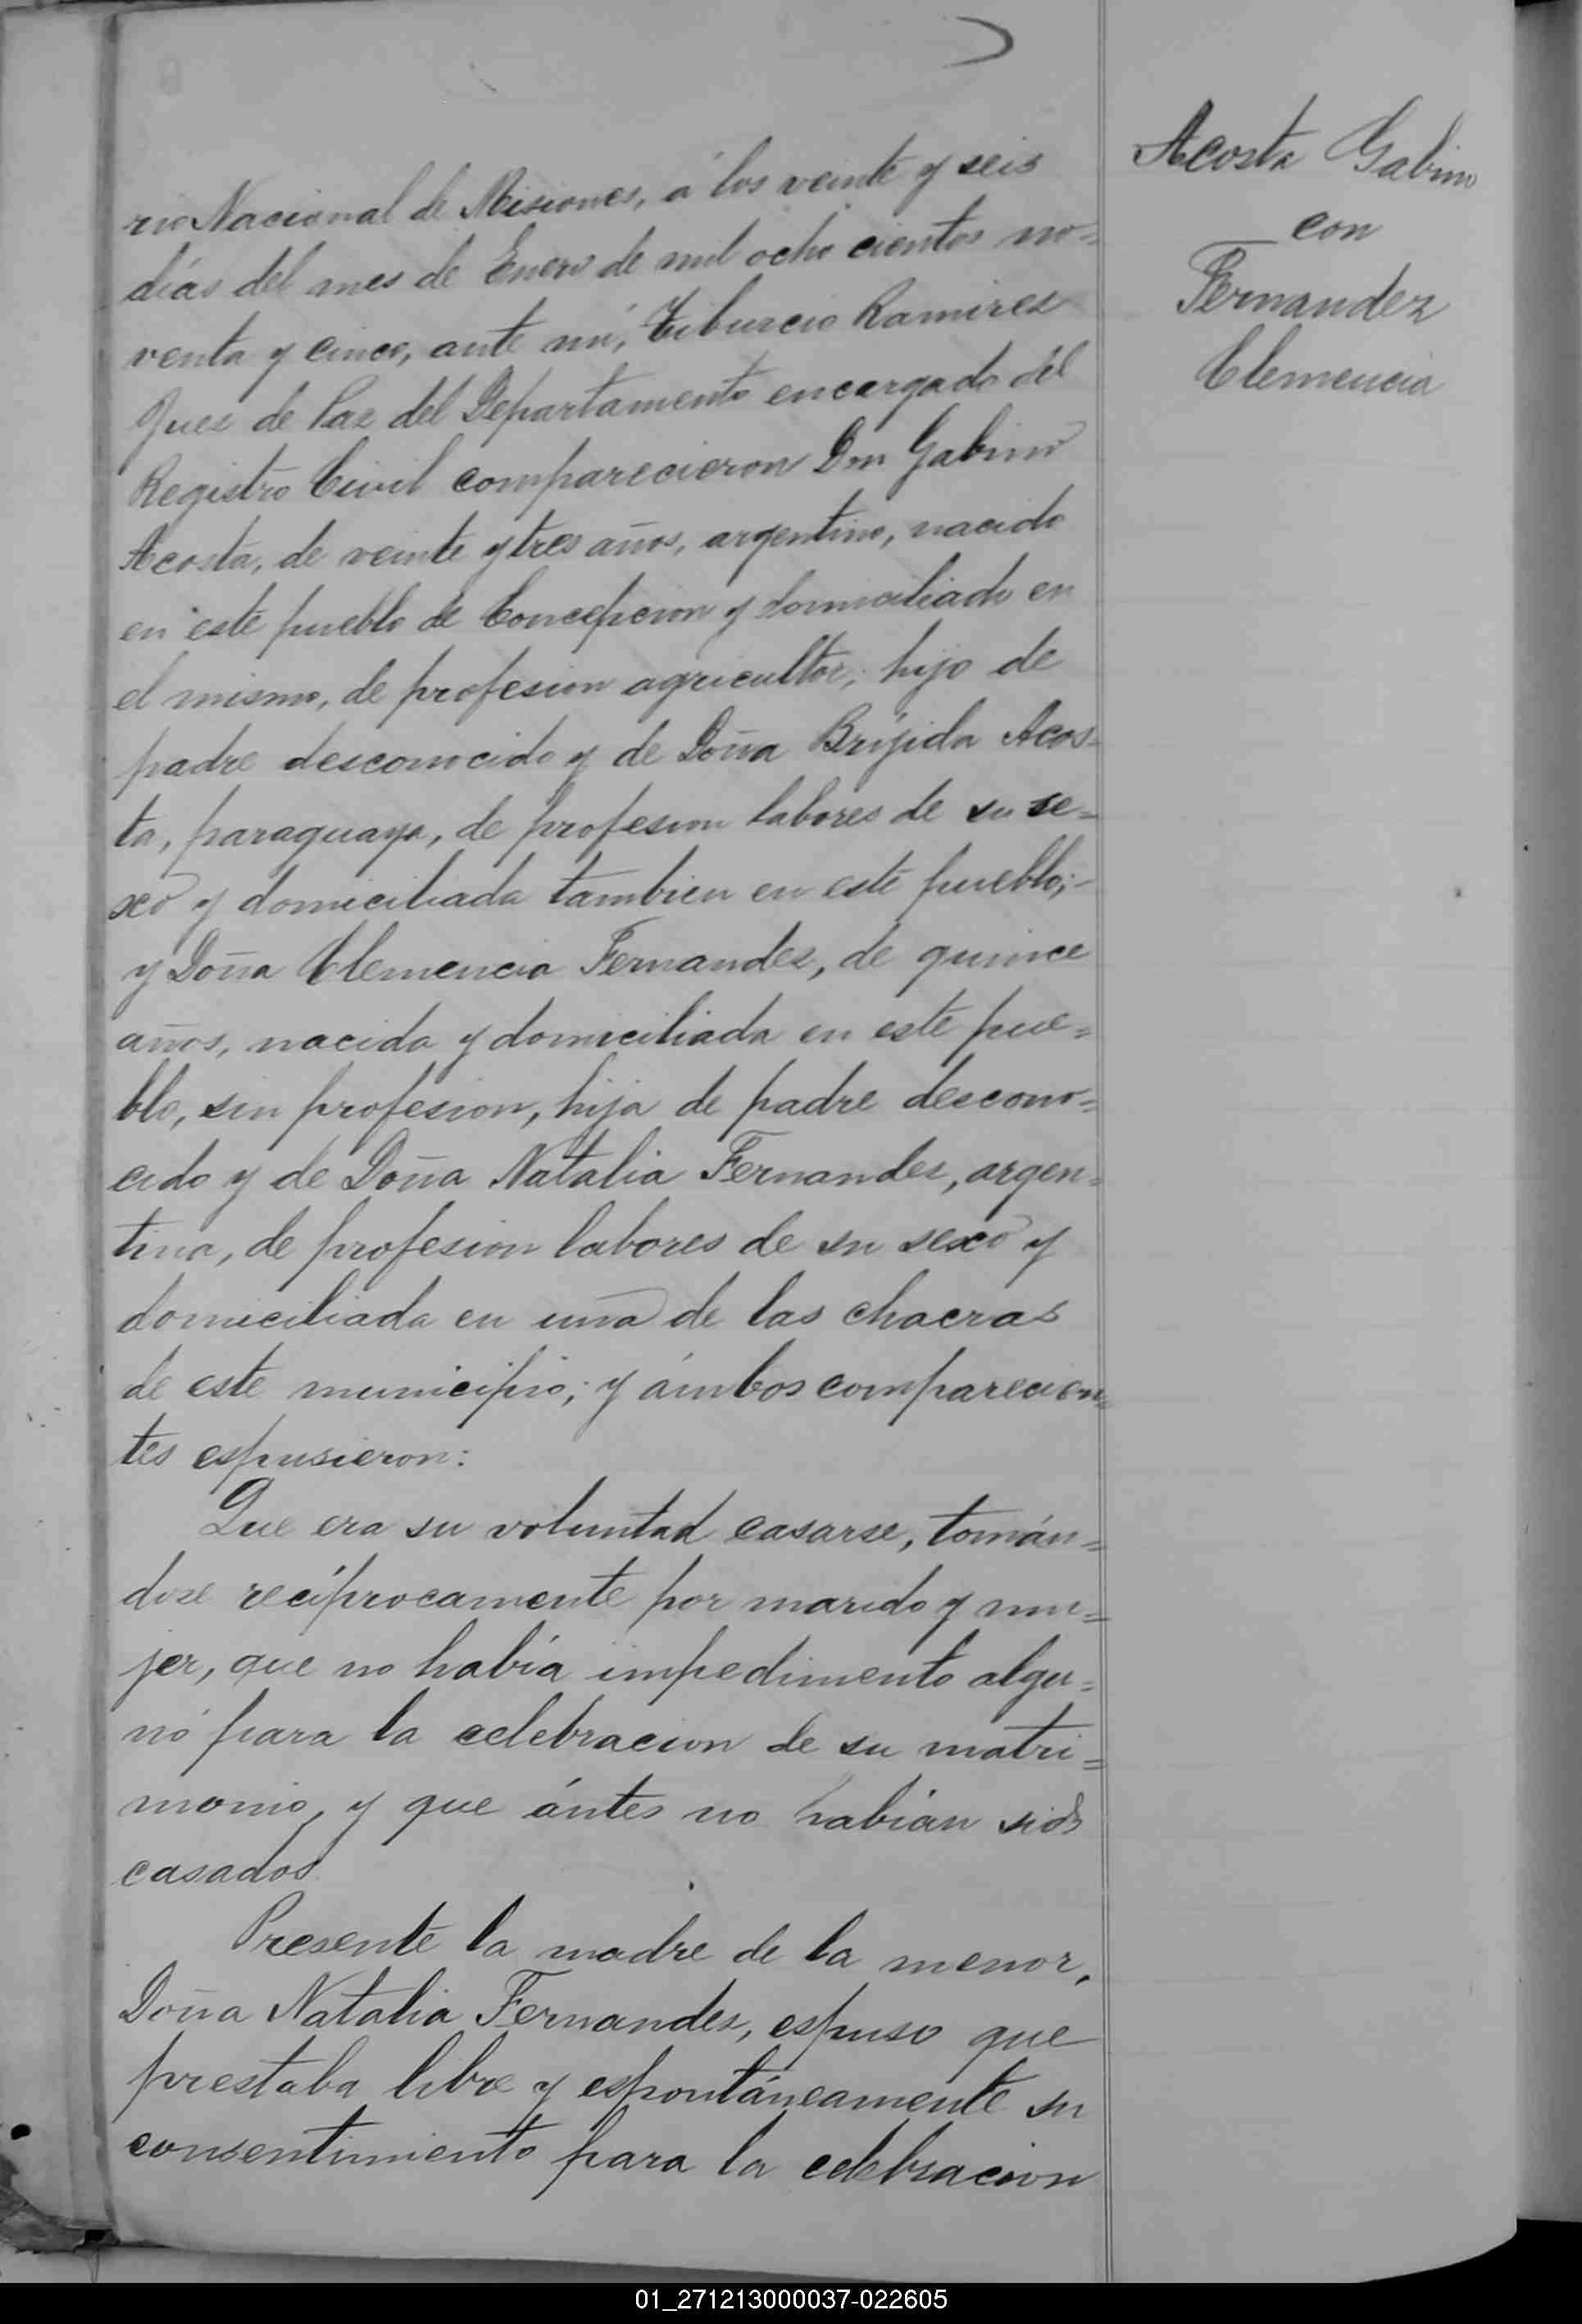 rio Nacional de Misiones, á los veinte y seis
días del mes de Enero de mil ocho cientos no=
venta y cinco, ante mí, Tiburcio Ramirez
Juez de Paz del Departamento encargado del
Registro Civil comparecieron Don Gabino
Acosta, de veinte y tres años, argentino, nacido
en este pueblo de Concepcion y domiciliado en
el mismo, de profesion agricultor; hijo de
padre desconocido y de Doña Bríjida Acos=
ta, paraguaya, de profesion labores de su se=
xo y domiciliada tambien en este pueblo;-
y Doña Clemencia Fernandez, de quince
años, nacida y domiciliada en este pue=
blo, sin profesion, hija de padre descono=
cido y de Doña Natalia Fernandez, argen=
tina, de profesion labores de su sexo y
domiciliada en una de las chacras
de este municipio; y ámbos comparecien=
tes espusieron:
Que era su voluntad casarse, tomán=
dose recíprocamente por marido y mu=
jer, que no había impedimento algu=
no para la celebracion de su matri=
monio, y que ántes no habían sido
casados.
Presente la madre de la menor,
Doña Natalia Fernandez, espuso que
prestaba libre y espontáneamente su
consentimiento para la celebracion
Acosta Gabino
con
Fernandez
Clemencia
01_271213000037-022605